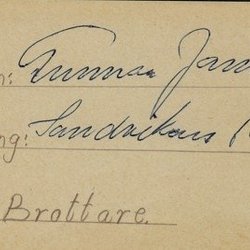 n: Gunnar Jan
ng: Sandvikens
Brottare.